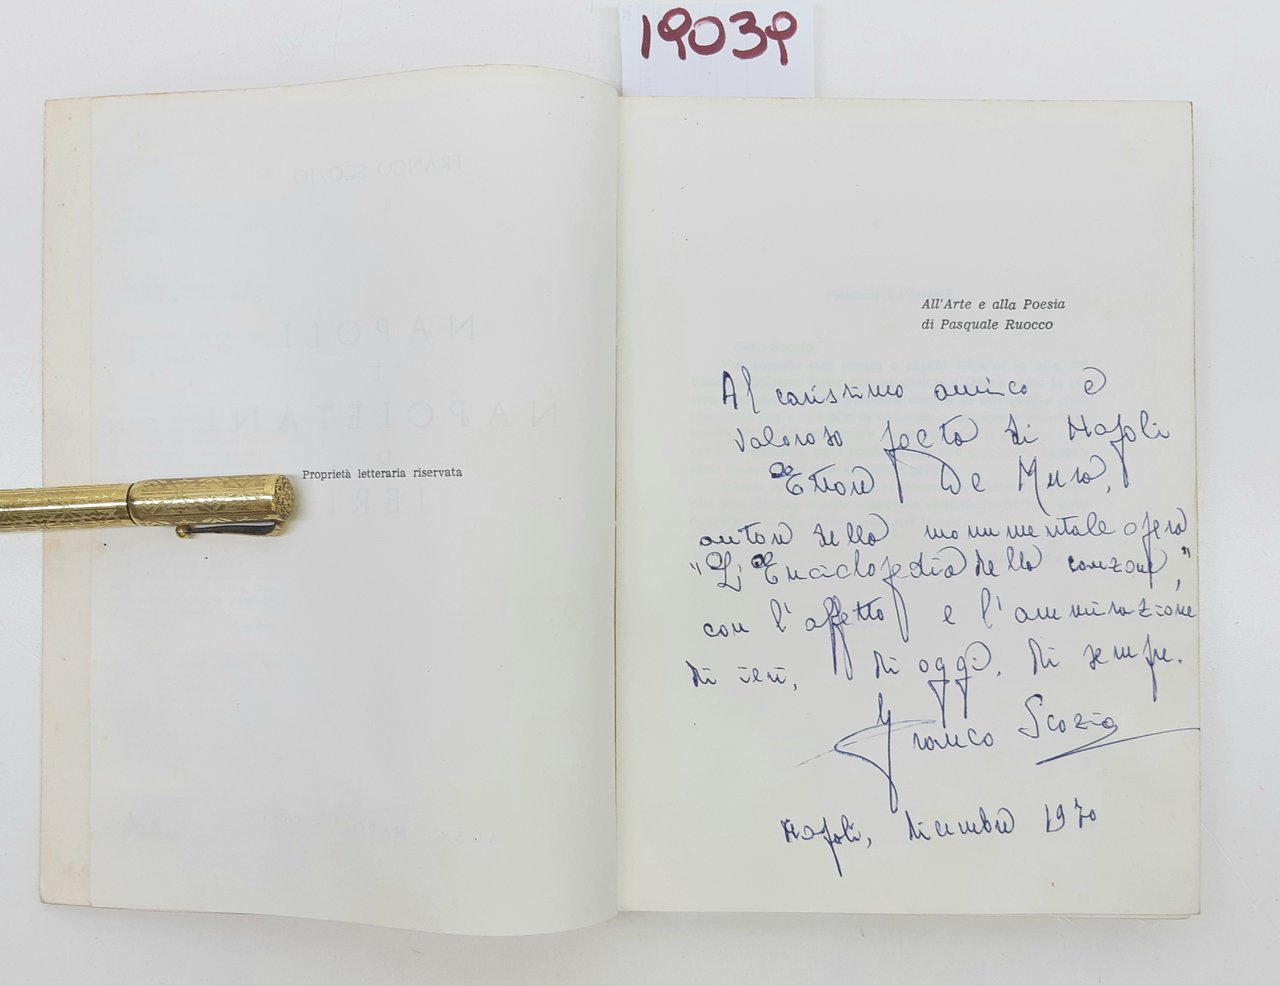 19039
Proprietà letteraria riservata
All'Arte e alla Poesia
di Pasquale Ruocco
Al carissimo amico e
valoroso poeta di Napoli
Ettore De Mura,
autore della monumentale opera
"L'Enciclopedia della canzone",
con l'affetto e l'ammirazione
di ieri, di oggi, di sempre.
Franco Scozio
Napoli, dicembre 1970
FRANCO SCOZIO
NAPOLI
E
NAPOLETANI
DI
IERI